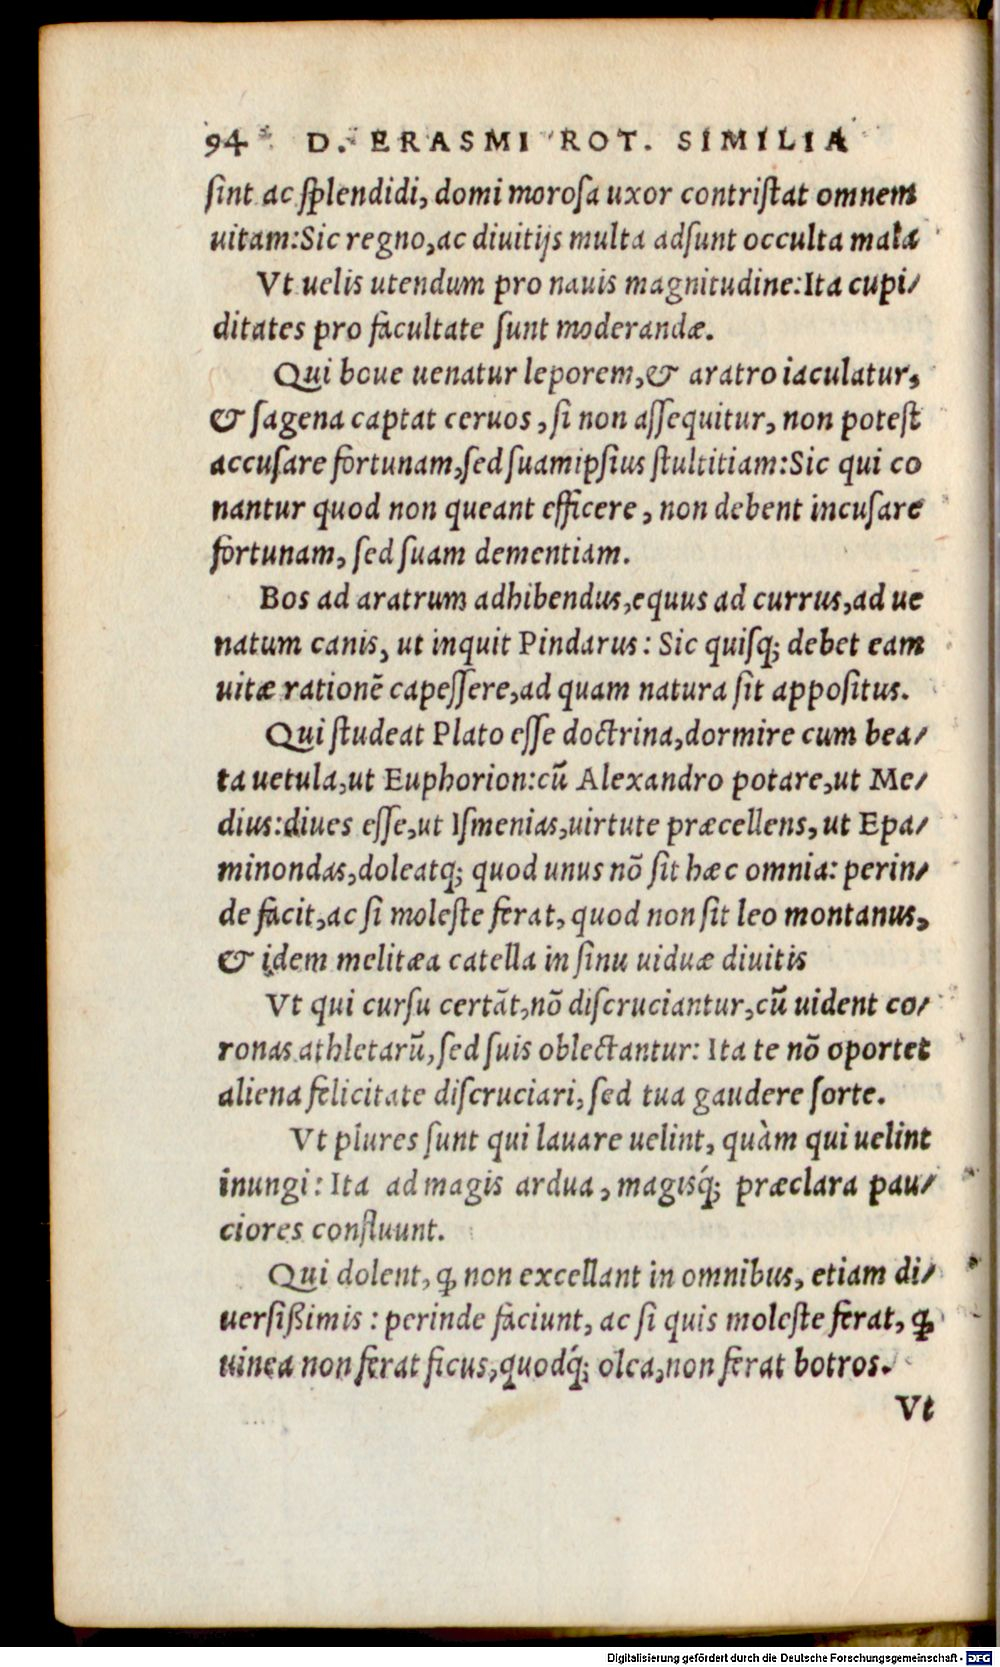 94 D. ERASMI ROT. SIMILIA
ſint ac ſplendidi, domi moroſa uxor contriſtat omnem
uitam:Sic regno,ac diuitijs multa adſunt occulta mala
Vt uelis utendum pro nauis magnitudine:Ita cupi/
ditates pro facultate ſunt moderandæ.
Qui boue uenatur leporem,& aratro iaculatur,
& ſagena captat ceruos, ſi non aſſequitur, non poteſt
accuſare fortunam,ſed ſuamipſius ſtultitiam:Sic qui co
nantur quod non queant efficere, non debent incuſare
fortunam, ſed ſuam dementiam.
Bos ad aratrum adhibendus,equus ad currus,ad ue
natum canis, ut inquit Pindarus: Sic quiſq; debet eam
uitæ rationē capeſſere,ad quam natura ſit appoſitus.
Qui ſtudeat Plato eſſe doctrina,dormire cum bea/
ta uetula,ut Euphorion:cū Alexandro potare,ut Me/
dius:diues eſſe,ut Iſmenias,uirtute præcellens, ut Epa/
minondas,doleatq; quod unus nō ſit hæc omnia: perin/
de facit,ac ſi moleſte ferat, quod non ſit leo montanus,
& idem melitæa catella in ſinu uiduæ diuitis
Vt qui curſu certāt,nō diſcruciantur,cū uident co/
ronas athletarū, ſed ſuis oblectantur: Ita te nō oportet
aliena felicitate diſcruciari, ſed tua gaudere ſorte.
Vt plures ſunt qui lauare uelint, quàm qui uelint
inungi: Ita ad magis ardua, magisq́; præclara pau/
ciores confluunt.
Qui dolent, ꝙ non excellant in omnibus, etiam di/
uerſißimis: perinde faciunt, ac ſi quis moleſte ferat, ꝙ
uinea non ferat ficus,quodq́; olea,non ferat botros.
Vt
Digitalisierung gefördert durch die Deutsche Forschungsgemeinschaft - DFG